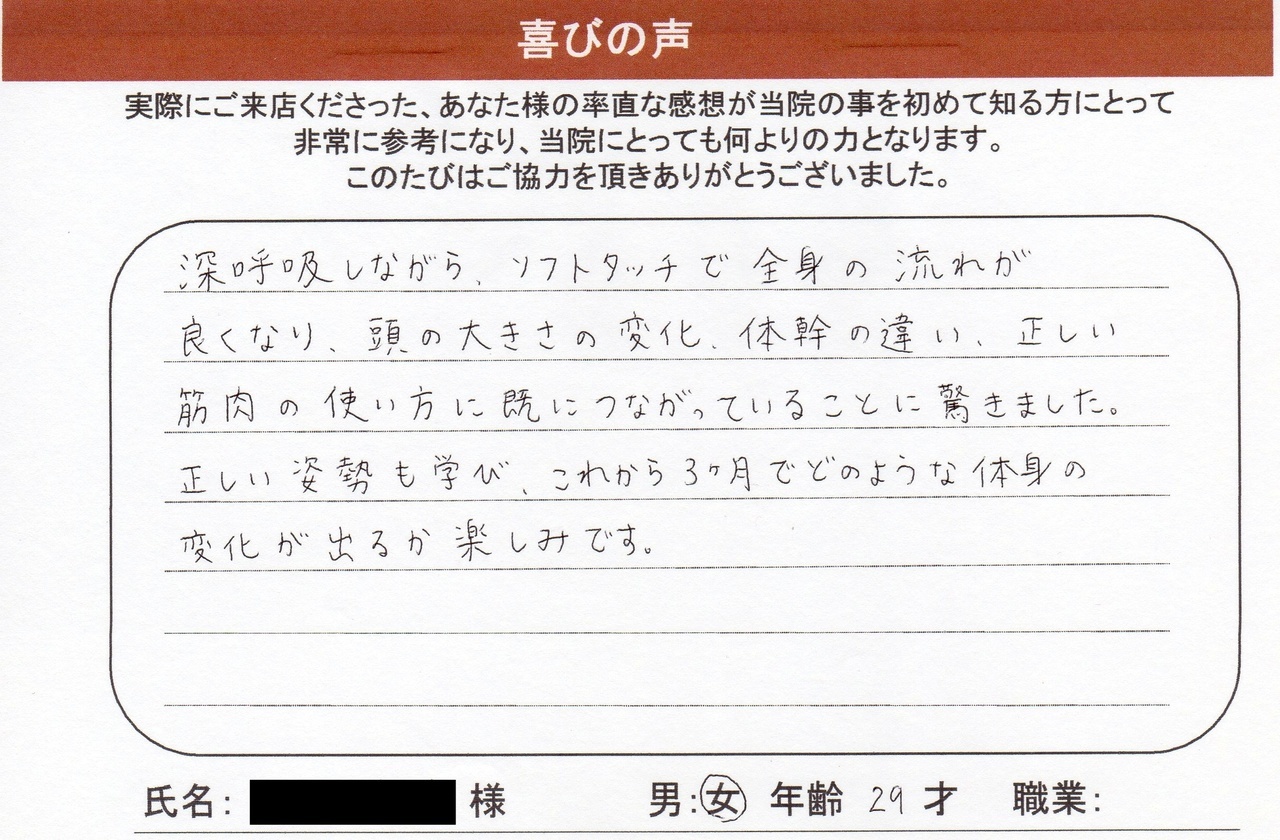 喜びの声
実際にご来店くださった、あなた様の率直な感想が当院の事を初めて知る方にとって
非常に参考になり、当院にとっても何よりの力となります。
このたびはご協力を頂きありがとうございました。
深呼吸しながら、ソフトタッチで全身の流れが
良くなり、頭の大きさの変化、体幹の違い、正しい
筋肉の使い方に既につながっていることに驚きました。
正しい姿勢も学び、これから3ヶ月でどのような体身の
変化が出るか楽しみです。
氏名: 様 男:女 年齢 29 才 職業: